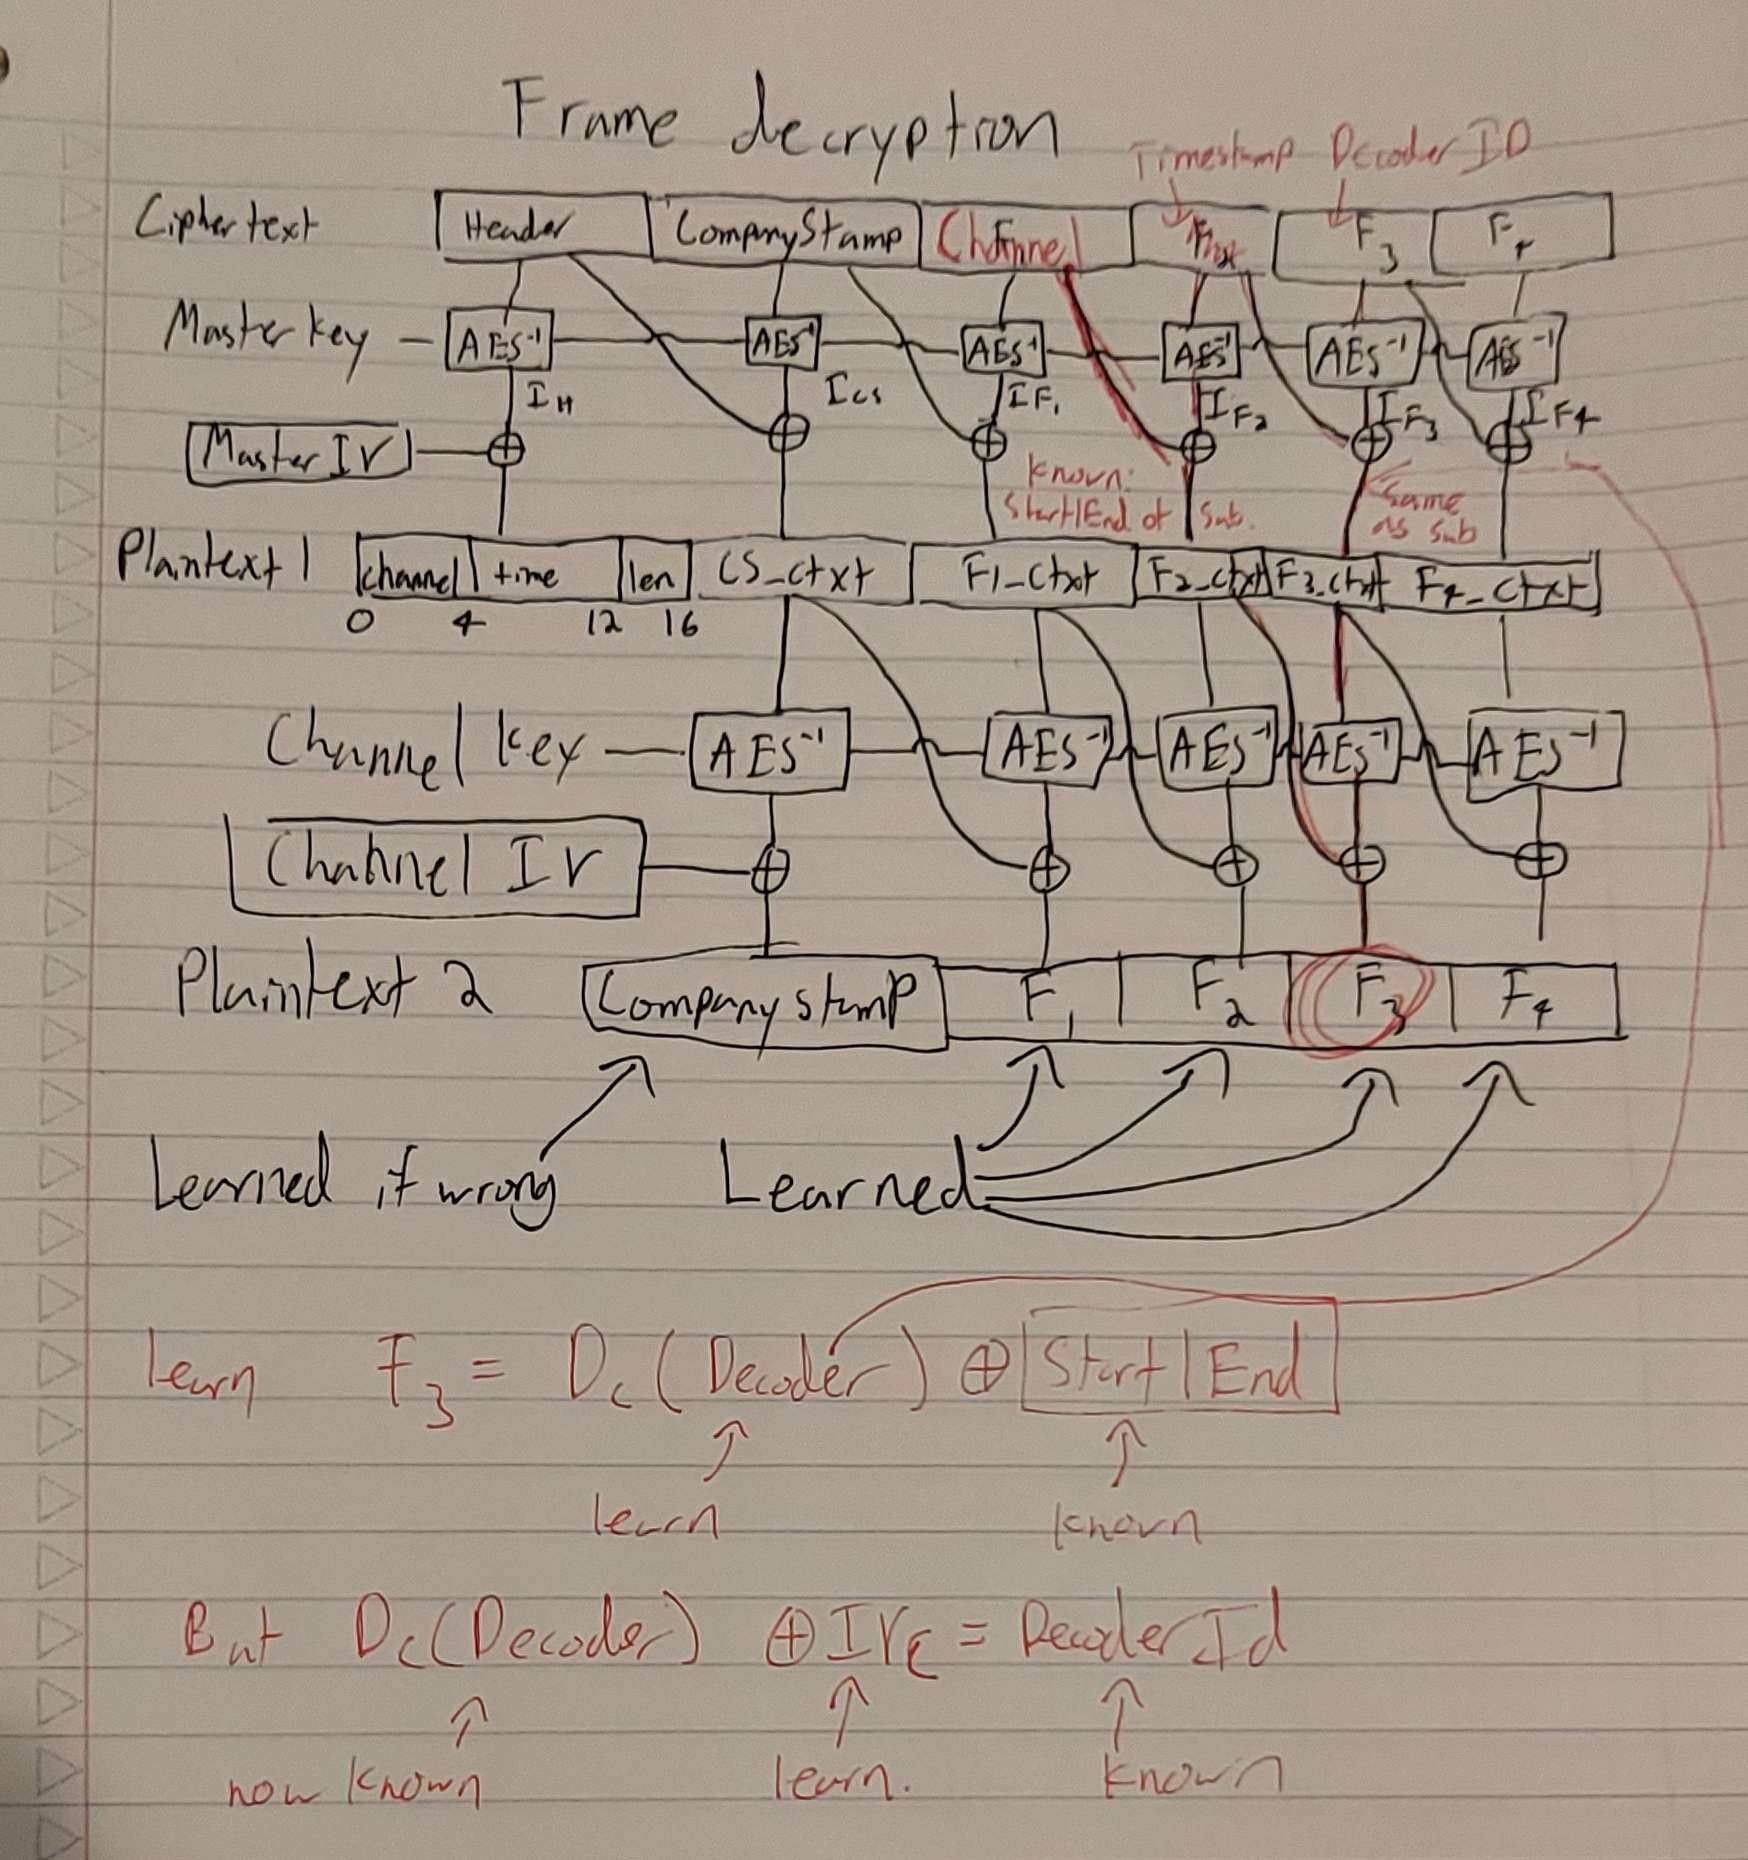 Frame decryption
Timestamp Decoder ID
Ciphertext Header CompanyStamp Channel F3 F4
Master key AES⁻¹ AES⁻¹ AES⁻¹ AES⁻¹ AES⁻¹ AES⁻¹
IH ICS IF1 IF2 IF3 IF4
Master IV
Known:
Start|End of sub.
Same
as sub
Plaintext 1 channel time len CS_ctxt F1_ctxt F2_ctxt F3_ctxt F4_ctxt
0 4 12 16
Channel key AES⁻¹ AES⁻¹ AES⁻¹ AES⁻¹ AES⁻¹
Channel IV
Plaintext 2 Company stamp F1 F2 F3 F4
Learned if wrong Learned
learn F3 = Dc(Decoder) ⊕ Start|End
learn known
But Dc(Decoder) ⊕ IVc = DecoderId
now known learn. known